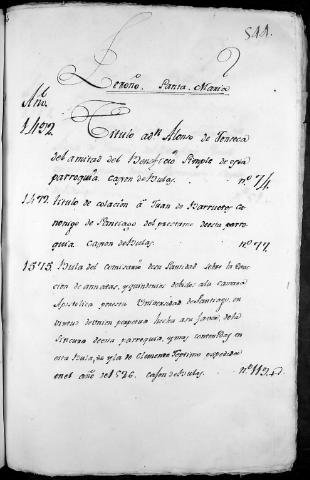 544.
Leroño. Santa Maria
Año.
1492. Titulo a dn Alonso de Fonseca
del amitad del Beneficio Simple de esta
parroquia. Cajon de Bulas. nº 74.
1472. titulo de colacion á Juan de Barrueto, Ca
nonigo de Santiago del prestamo de esta parro
quia. Cajon de Bulas. nº 77.
1575. Bula del comisario de su Santidad sobre la
cion de annatas, y quindenios debidos a la Camara
Apostolica por esta Universidad de Santiago, en
virtud de union perpetua hecha a su favor, de la
Sincura de esta parroquia, y mas contenidas en
esta Bula, de y la de Clemente Septimo expedida
en el año de 1526. Cajon de Bulas. nº 112